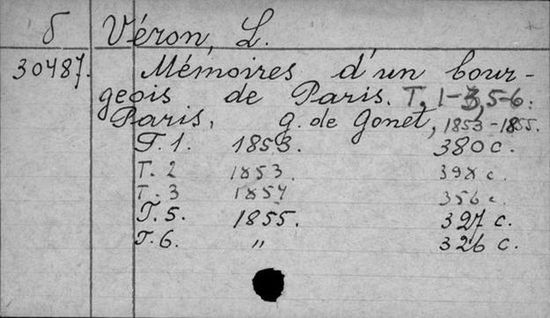 б Véron, L.
30487. Mémoires d'un bour-
geois de Paris. T. 1-3, 5-6.
Paris, G. de Gonet, 1853-1855.
T. 1. 1853. 380 c.
T. 2 1853. 398 c.
T. 3 1854 356 c.
T. 5. 1855. 327 c.
T. 6. " 326 c.